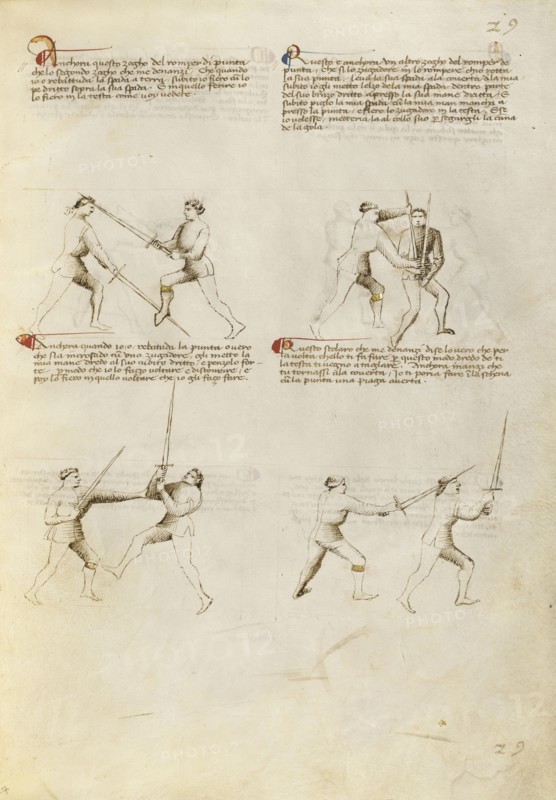 29
Anchora questo zogho del romper di punta
che lo segondo zogho che me denanzi. Che quando
io o rebattuda la spada a terra. subito io fiero cu lo
pe dritto sopra la sua spada. E in quello ferire io
lo fiero in la testa come voy vedete.
Questo e anchora un altro zogho del romper de
punta. Che si lo zugadore in lo rompere che io rotta
la sua punta. leva la sua spada ala coverta dela mia
subito io gli metto lelzo dela mia spada. dentro parte
del suo brazo dritto apresso la sua mane dritta. E
subito piglo la mia spada cum la mia man mancha a
presso la punta. e fiero lo zugadore in la testa. E se
io volesse. metteria la al collo suo per segargli la cana
de la gola.
Anchora quando io o. rebatuda la punta o uero
che sia incrosado cum uno zugadore. gli metto la
mia mane dredo al suo cubito dritto. e penzolo for-
te. per modo che io lo fazo voltare e discovrire. e
poy lo fiero in quello voltare che io gli fazo fare.
Questo scolaro che me denanzi dise lo vero che per
la volta chello ti fa fare per questo modo dredo de ti
la testa ti vegno a tagliare. Anchora inanzi che
tu tornassi ala coverta. Io ti poria fare in la schena
cum la punta una piaga averta.
29